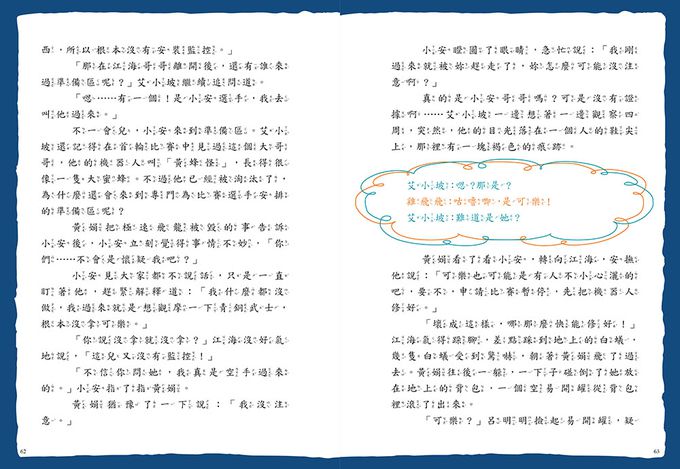 西，所以根本沒有安裝監控。」
「那在江海哥哥離開後，還有誰來
過準備區呢？」艾小坡繼續追問道。
「嗯……有一個！是小安選手，我去
叫他過來。」
不一會兒，小安來到準備區。艾小
坡還記得在首輪比賽中見過這個大哥
哥，他的機器人叫「黃蜂怪」，長得很
像一隻大蜜蜂。不過他已經被淘汰了，
為什麼還會來到專門為比賽選手安排
的準備區呢？
黃娟把極速飛龍被毀的事告訴
小安後，小安立刻覺得事情不妙，「你
們……不會是懷疑我吧？」
小安見大家都不說話，只是一直
盯著他，趕緊解釋道：「我什麼都沒
做，我過來就是想觀摩一下青銅武士，
根本沒拿可樂。」
「你說沒拿就沒拿？」江海沒好氣
地說，「這兒又沒有監控！」
「不信你問她，我真是空手過來
的。」小安指了指黃娟。
黃娟猶豫了一下說：「我沒注
意。」
62
小安瞪圓了眼睛，急忙說：「我剛
過來就被妳趕走了，妳怎麼可能沒注
意啊？」
真的是小安哥哥嗎？可是沒有證
據啊……艾小坡一邊想著一邊觀察四
周，突然，他的目光落在一個人的鞋尖
上，那裡有一塊褐色的痕跡。
艾小坡：嗯？那是？
雞飛飛：咕嚕唧，是可樂！
艾小坡：難道是她？
黃娟看了看小安，轉向江海，安撫
他說：「可樂也可能是有人不小心灑的
吧，要不，申請比賽暫停，先把機器人
修好。」
「壞成這樣，哪那麼快能修好！」
江海氣得跺腳，差點踩到地上的白蟻，
幾隻白蟻受到驚嚇，朝著黃娟飛了過
去。黃娟往後一躲，一下子碰倒了她放
在地上的背包，一個空易開罐從背包
裡滾了出來。
「可樂？」呂明明撿起易開罐，疑
63